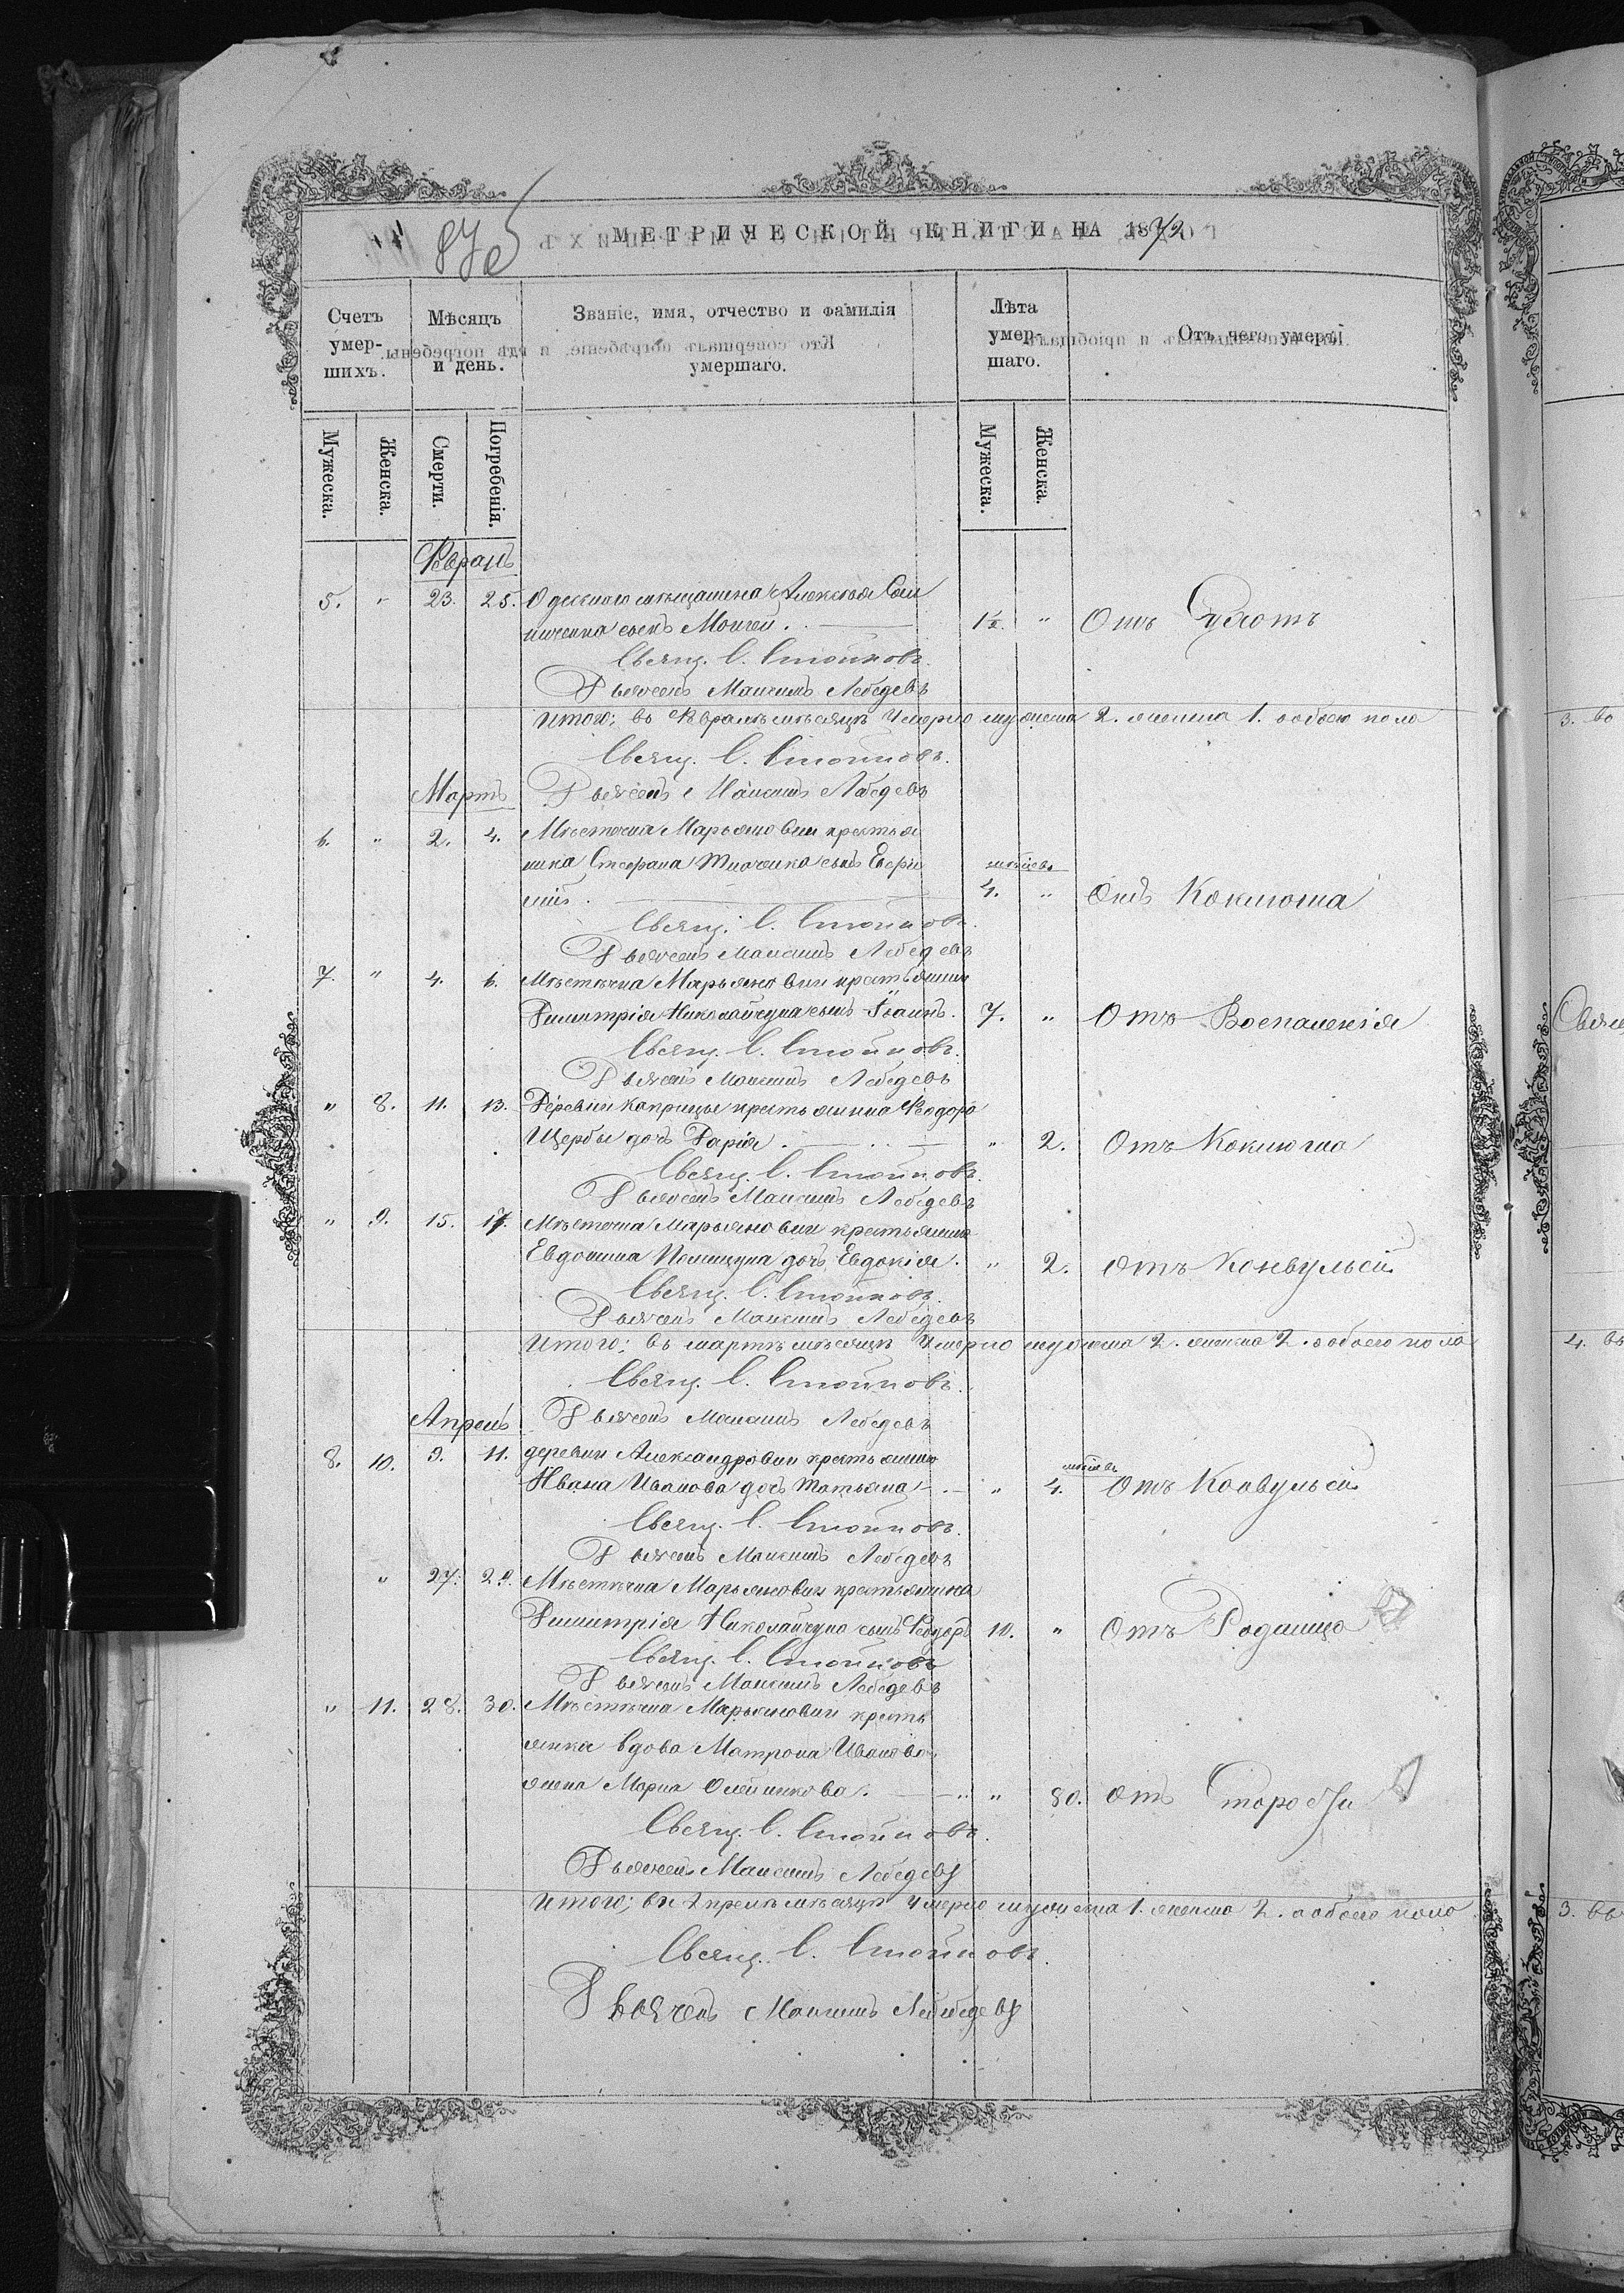 875
МЕТРИЧЕСКОЙ КНИГИ НА 1872
Счетъ умер-шихъ.
Мѣсяцъ и день.
Званіе, имя, отчество и фамилія умершаго.
Лѣта умер-шаго.
Отъ чего умеръ
Мужеска.
Женска.
Смерти.
Погребенія.
Мужеска.
Женска.
Февраль
5. " 23. 25. Одесскаго мѣщанина Алексѣя
сынъ Моисей. 1½ " Отъ
Свящ. С. Стойковъ.
Дьячекъ Максимъ Лебедевъ
Итого: въ Февралѣ мѣсяцѣ умерло мужеска 2. женска 1. обоего пола
Свящ. С. Стойковъ.
Мартъ
Дьячекъ Максимъ Лебедевъ
6. " 2. 4. Мѣстечка Марьяновки крестья
нина Стефана сынъ
мѣсяцевъ
4. " Отъ Коклюша
Свящ. С. Стойковъ.
Дьячекъ Максимъ Лебедевъ
7. " 4. 6. Мѣстечка Марьяновки крестьянина
Димитрія Николайчука сынъ Іоаннъ. 7. " Отъ Воспаленія
Свящ. С. Стойковъ.
Дьячекъ Максимъ Лебедевъ
" 8. 11. 13. Деревни Каприцы крестьянина Феодора
Щербы дочь Дарія. " 2. Отъ Коклюша
Свящ. С. Стойковъ.
Дьячекъ Максимъ Лебедевъ
" 9. 15. 17. Мѣстечка Марьяновки крестьянина
Евдокима дочь Евдокія. " 2. Отъ Конвульсій
Свящ. С. Стойковъ.
Дьячекъ Максимъ Лебедевъ
Итого: въ мартѣ мѣсяцѣ умерло мужеска 2. женска 2. обоего пола
Свящ. С. Стойковъ.
Апрель
Дьячекъ Максимъ Лебедевъ
8. 10. 9. 11. деревни Александровки крестьянина
мѣсяцевъ
Ивана Иванова дочь Татьяна " 4. Отъ Конвульсій
Свящ. С. Стойковъ.
Дьячекъ Максимъ Лебедевъ
" 27. 29. Мѣстечка Марьяновки крестьянина
Димитрія Николайчука сынъ Феодоръ 10. " Отъ
Свящ. С. Стойковъ
Дьячекъ Максимъ Лебедевъ
" 11. 28. 30. Мѣстечка Марьяновки кресть
янка вдова Матрона Иванова
жена Марка Олейникова. " 80. Отъ Старости
Свящ. С. Стойковъ.
Дьячекъ Максимъ Лебедевъ
Итого: въ Апрелѣ мѣсяцѣ умерло мужеска 1. женска 2. а обоего пола
Свящ. С. Стойковъ.
Дьячекъ Максимъ Лебедевъ
3. во
4. въ
3. въ